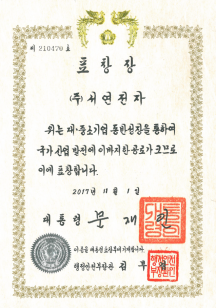 제 210470 호
표 창 장
(주) 서연전자
위는 대·중소기업 동반성장을 통하여
국가 산업 발전에 이바지한 공로가 크므로
이에 표창합니다.
2017년 11월 1일
대통령 문재인
이 증을 대통령표창부에 기입합니다.
행정안전부장관 김부겸